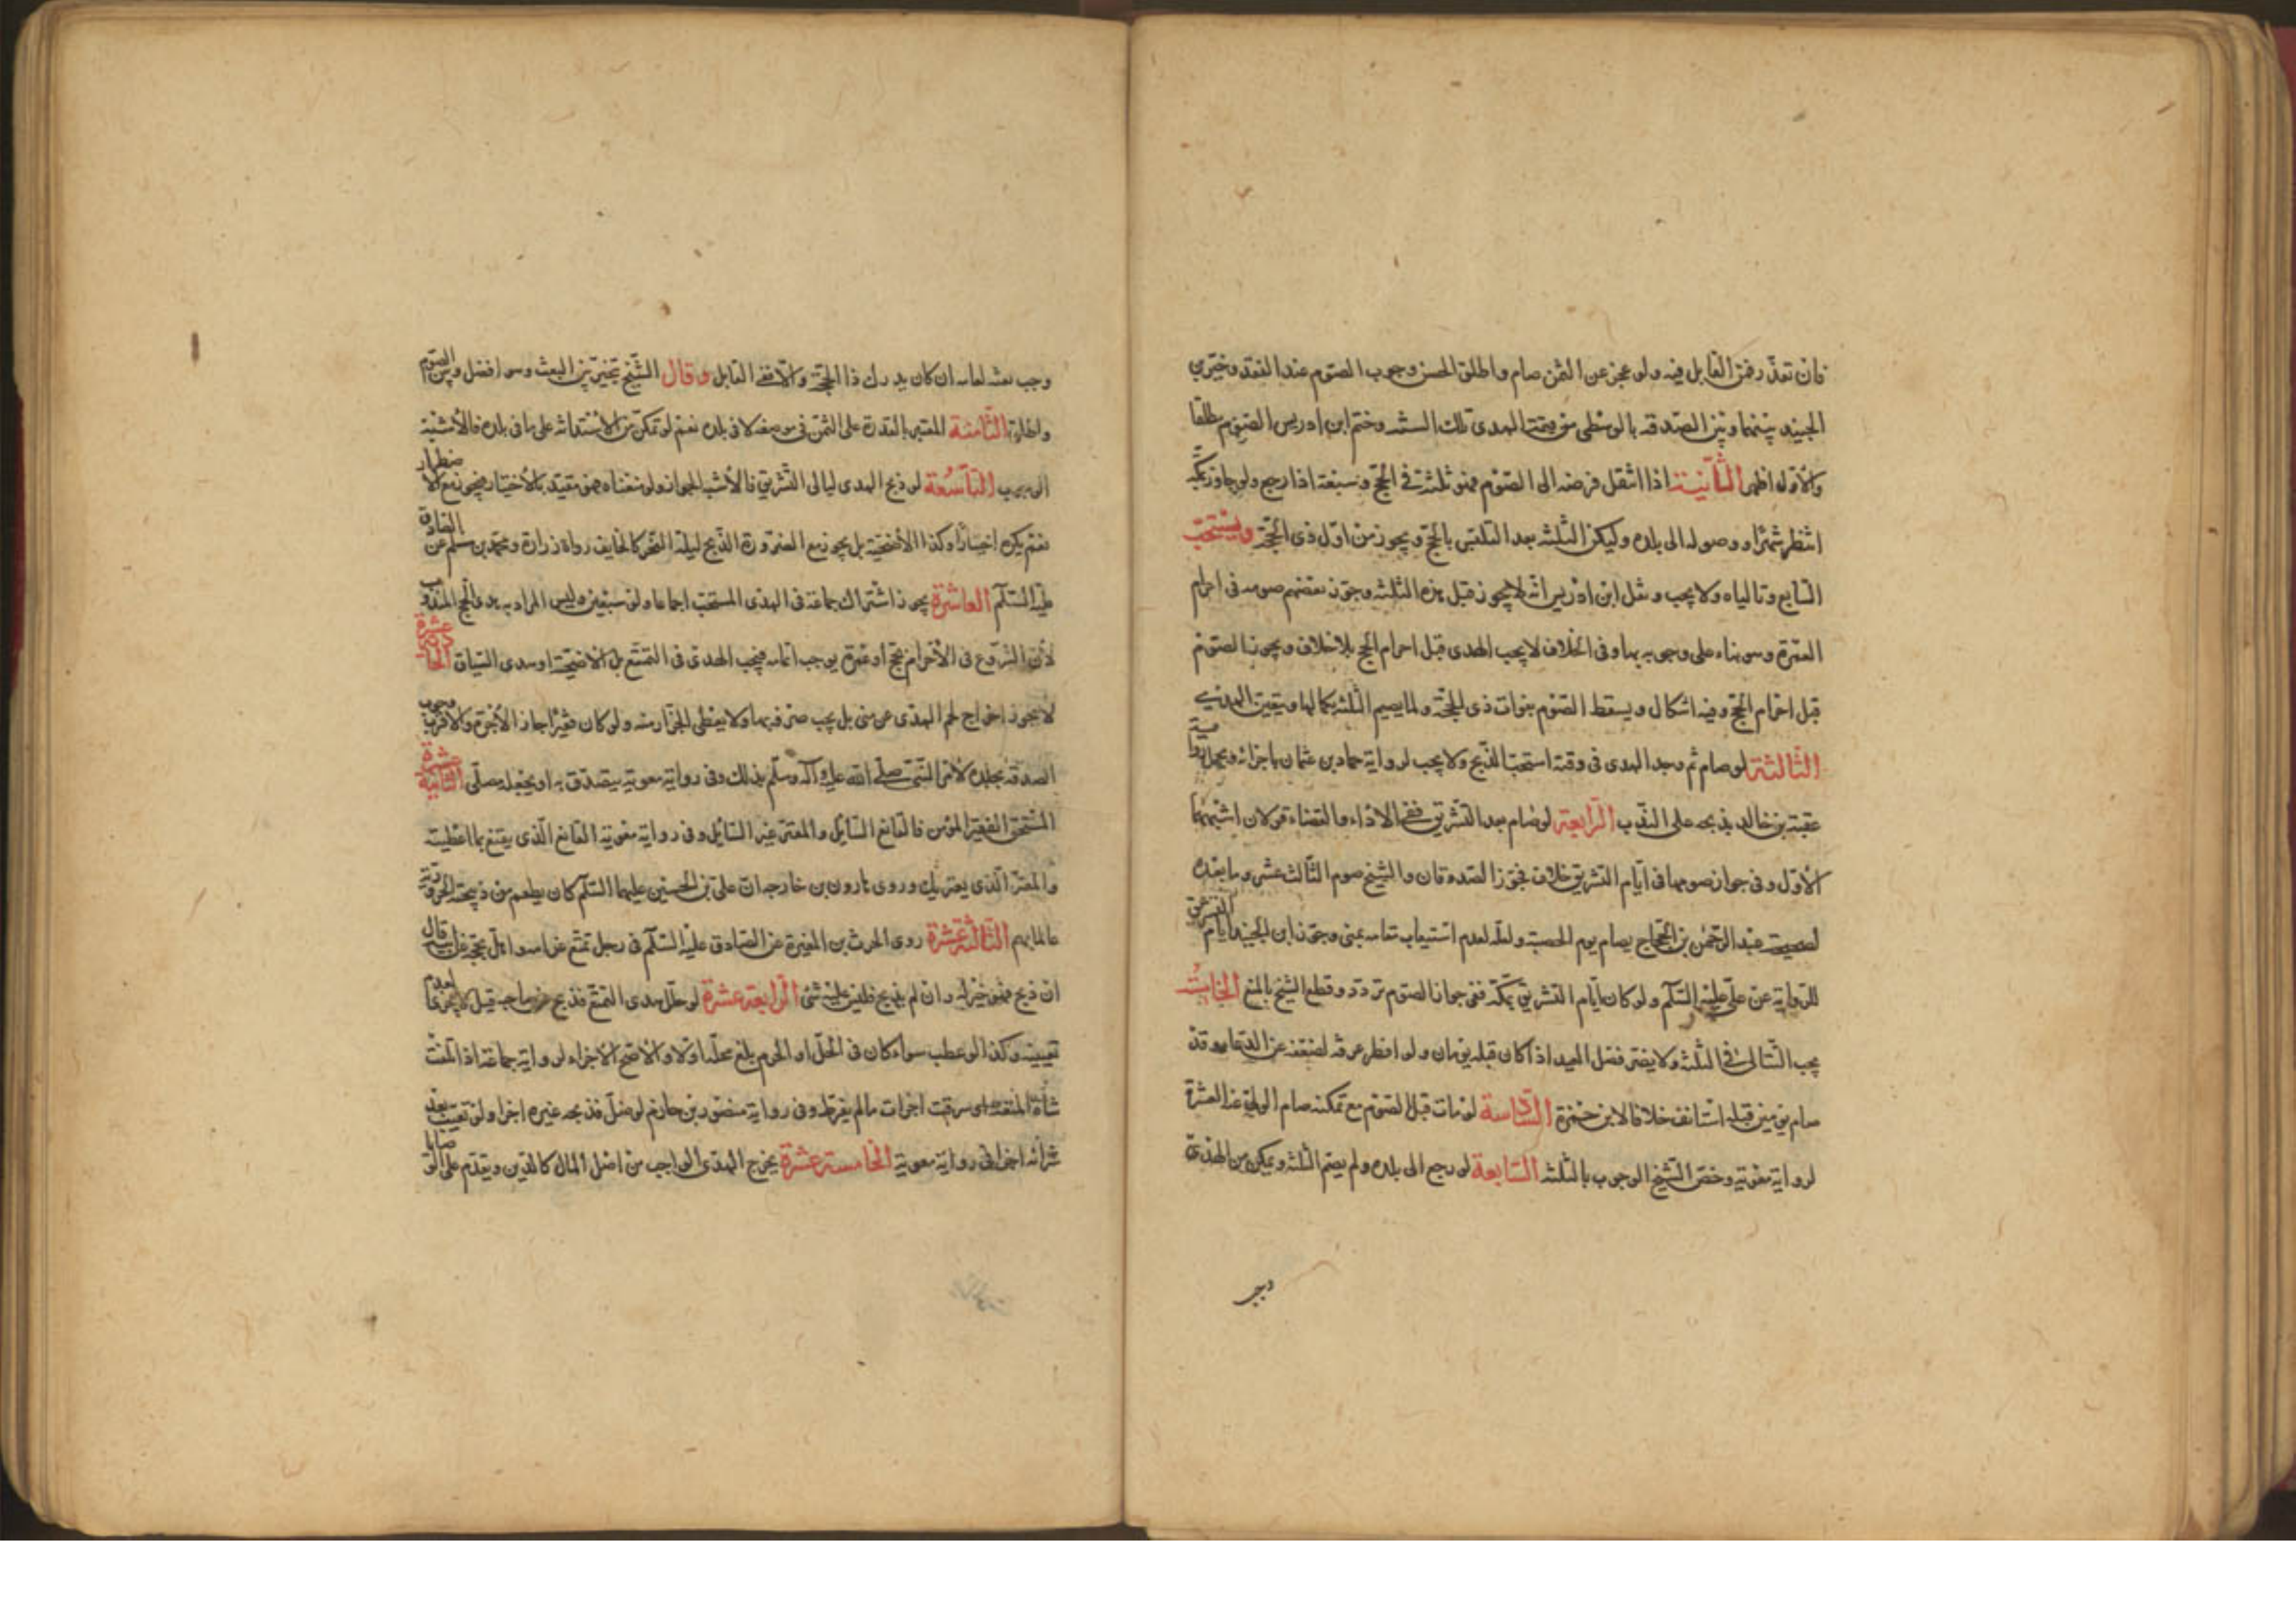 فان تعذر فمن القابل فيه ولو عجز عن الثمن صام واطلق الحسن وجوب الصوم عند الفقد وخير ابن
الجنيد بينهما وبين الصدقة بالوسطى من قيمة الهدى تلك السنة وحتم ابن ادريس الصوم مطلقا
والأول اظهر الثانية اذا انتقل فرضه الى الصوم فهو ثلثة في الحج وسبعة اذا رجع ولو جاور بمكة
انتظر شهرا او وصوله الى بلده وليكن الثلثة بعد التلبس بالحج ويجوز من اول ذى الحجة ويستحب
السابع وتالياه ولا يجب ونقل ابن ادريس انه لا يجوز قبل هذه الثلثة وجوز بعضهم صومه فى احرام
العمرة وهو بناء على وجوبه بها وفى الخلاف لا يجب الهدى قبل احرام الحج بلا خلاف ويجوز الصوم
قبل احرام الحج وفيه اشكال ويسقط الصوم بفوات ذى الحجة ولما يصم الثلثة بكمالها ويتعين الهدى
الثالثة لو صام ثم وجد الهدى فى وقته استحب الذبح ولا يجب لرواية حماد بن عثمان باجزائه ويحمل رواية
عقبة بن خالد بذبحه على الندب الرابعة لو صام بعد التشريق ففى الاداء والقضاء قولان اشبههما
الأول وفى جواز صومها فى ايام التشريق خلاف فجوز الصدوقان والشيخ صوم الثالث عشر وما بعده
عبد الرحمن بن الحجاج يصام يوم الحصبة ولعله لعدم استيعاب مقامه بمنى وجوز ابن الجنيد ايام التشريق
للرواية عن على عليه السلام ولو كان ايام التشريق بمكة ففى جواز الصوم تردد وقطع الشيخ بالمنع الخامسة
يجب التتالى فى الثلثة ولا يضر فصل العيد اذا كان قبله يومان ولو افطر عرفة لضعفه عن الدعاء وقد
صام يومين قبله استانف خلافا لابن حمزة السادسة لو مات قبل الصوم مع تمكنه صام الولى عنه العشرة
لرواية معوية وخص الشيخ الوجوب بالثلثة السابعة لو رجع الى بلده ولم يصم الثلثة وتمكن من الهدى
وجب
وجب بعثه لعامه ان كان يدرك ذا الحجة والا ففى القابل وقال الشيخ يتخير بين البعث وهو افضل وبين الصوم
واطلق الثامنة المعتبر بالقدرة على الثمن فى موضعه لا فى بلده نعم لو تمكن من الاستدانة على ما فى بلده فالأشبه
الوجوب التاسعة لو ذبح الهدى ليالى التشريق فالأشبه الجواز ولو منعناه فهو مقيد بالأختيار فيجوز مع الاضطرار
نعم يكره اختيارا وكذا الأضحية بل يجوز مع الضرورة الذبح ليلة النحر كالخايف رواه زرارة ومحمد بن مسلم عن الصادق
عليه السلام العاشرة يجوز اشتراك جماعة فى الهدى المستحب اجماعا ولو سبعين وليس المراد به هدى الحج المندوب
لأن الشروع فى الأحرام بحج او عمرة يوجب اتمامه فيجب الهدى فى التمتع بل الأضحية او هدى السياق الحادية عشرة
لا يجوز اخراج لحم الهدى عن منى بل يجب صرفه بها ولا يعطى الجزار منه ولو كان فقيرا جاز لا اجرة والاقرب وجوب
الصدقة بجلده لأمر النبى صلى الله عليه وآله وسلم بذلك وفى رواية معوية يتصدق به او يجعله مصلى الثانية عشرة
المستحق الفقير المؤمن فالقانع السايل والمعتر غير السايل وفى رواية معوية القانع الذى يقنع بما اعطيته
والمعتر الذى يعتريك وروى هارون بن خارجة ان على بن الحسين عليهما السلام كان يطعم من ذبيحته الحرورية
عالما بهم الثالثة عشرة روى الحرث بن المغيرة عن الصادق عليه السلام فى رجل تمتع عن امه واهل بحجه عن ابيه قال
ان ذبح فهو خير له وان لم يذبح فليس عليه شئ الرابعة عشرة لو ضل هدى التمتع فذبح عن صاحبه قيل لا يجزى لعدم
تعيينه وكذا لو عطب سواء كان فى الحل او الحرم بلغ محله او لا والأصح الأجزاء لرواية جماعة اذا تلفت
شاة المتعة او سرقت اجزات ما لم يفرط وفى رواية منصور بن حازم لو ضل فذبحه غيره اجزا ولو تعيب بعد
شرائه اجزا فى رواية معوية الخامسة عشرة يخرج الهدى الواجب من اصل المال كالدين ويقدم على الوصايا